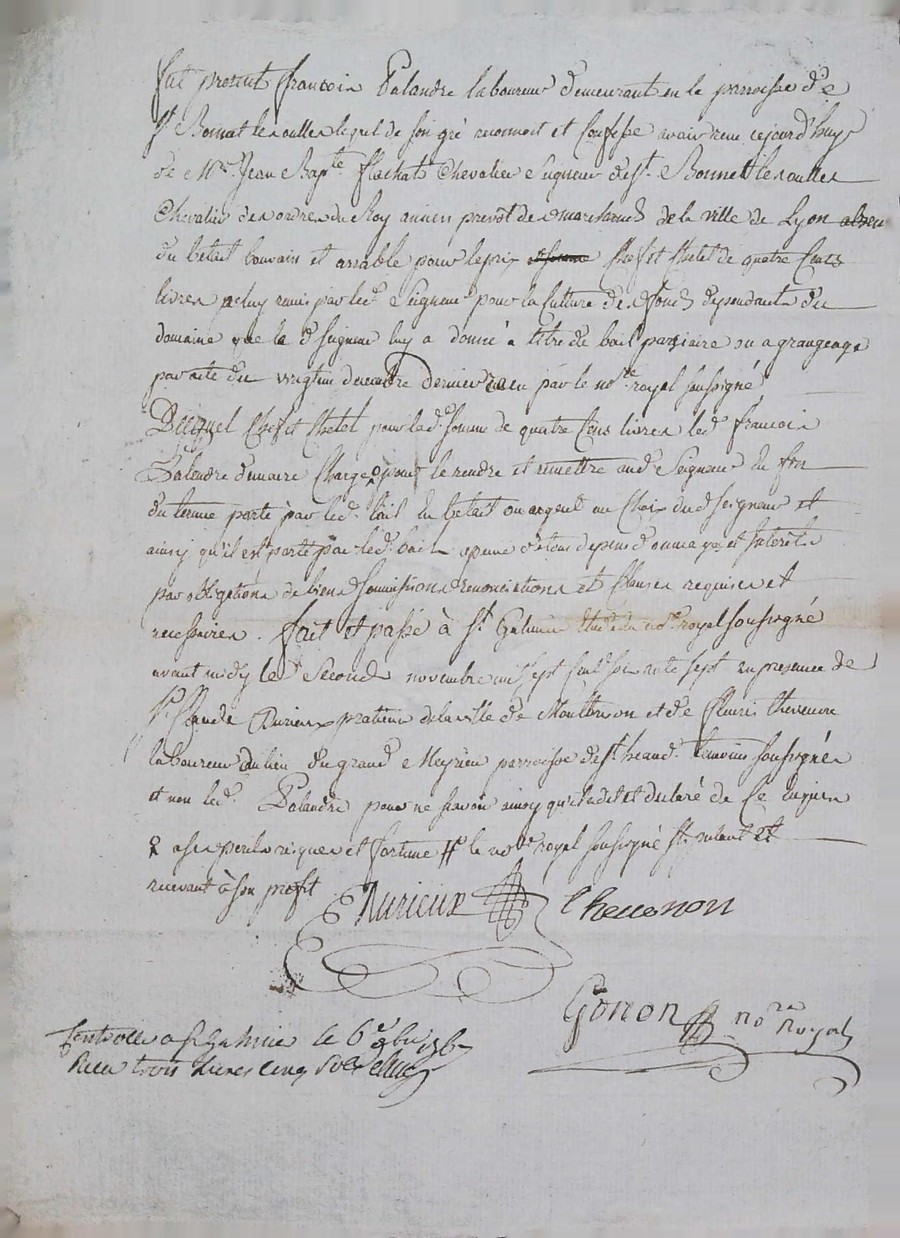 fut present francois Palandre laboureur demeurant en la parroisse de
St Bonnet les oulles lequel de son gré reconnoit et confesse avoir reçu cejourd'huy
de Mre Jean Bapte flachat Chevalier Seigneur de St Bonnet les oulles
Chevalier des ordres du Roy ancien prevot des marchands de la ville de Lyon absen
du betail bouvain et arrable pour le prix chef et chetel de quatre Cents
livres a luy remis par led Seigneur pour la Culture des fonds dependants du
domaine que le d Seigneur luy a donné a titre de bail parsiaire ou a grangeage
par acte du vingtun decembre dernier reçu par le nore royal soussigné
Duquel Chef et Chetel pour lad somme de quatre Cens livres led francois
Palandre demeure Chargé pour le rendre et remettre aud Seigneur du fin
du terme porté par led bail du betail ou argent au Choix dud Seigneur et
ainsy qu'il est porté par led bail a peine de tous depens dommages et Interets
par obligations de biens soumissions renonciations et Clauses requises et
necessaires . fait et passé à St Galmier Etude du nore royal soussigné
avant midy le Second novembre mil sept cent soixante sept en presence de
Sr Claude Durieux praticien de la ville de Montbrison et de fleuris thevenon
laboureur du lieu du grand Meyrieu parroisse de St heand temoins soussignés
et non led Palandre pour ne scavoir ainsy qu'il a dit et declaré de Ce enquis
a ses perils risques et fortune # le nore royal soussigné stipulant et
recevant à son profit
Durieux thevenon
Gonon nore Royal
Controlle a St Galmier le 6e 9bre 1767
Reçu trois livres cinq sols